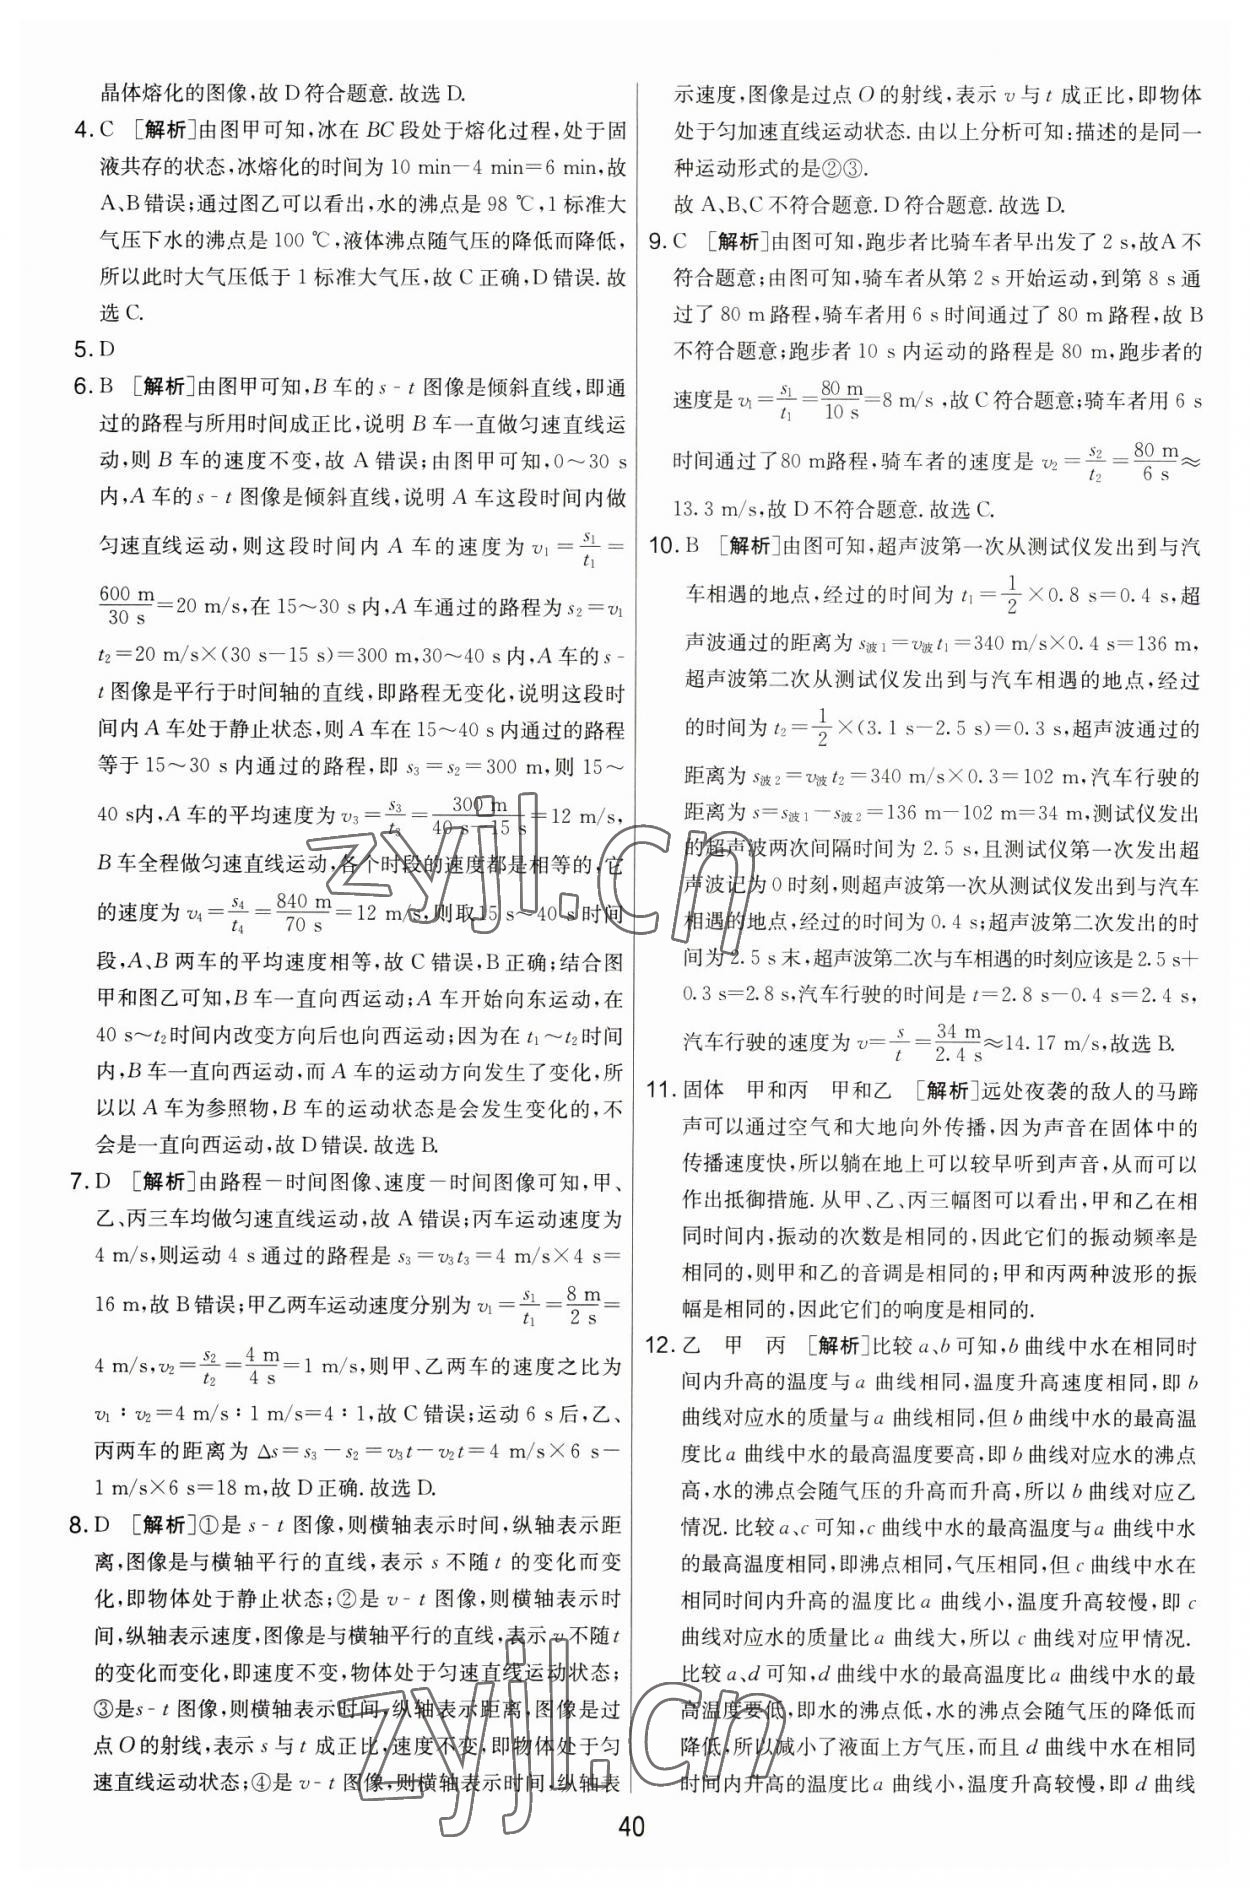 晶体熔化的图像,故 D 符合题意.故选 D.
4. C [解析]由图甲可知,冰在 BC 段处于熔化过程,处于固
液共存的状态,冰熔化的时间为 10 min－4 min=6 min,故
A、B 错误;通过图乙可以看出,水的沸点是 98 ℃,1 标准大
气压下水的沸点是 100 ℃,液体沸点随气压的降低而降低,
所以此时大气压低于 1 标准大气压,故 C 正确,D 错误.故
选 C.
5. D
6. B [解析]由图甲可知,B 车的 s - t 图像是倾斜直线,即通
过的路程与所用时间成正比,说明 B 车一直做匀速直线运
动,则 B 车的速度不变,故 A 错误;由图甲可知,0～30 s
内,A 车的 s - t 图像是倾斜直线,说明 A 车这段时间内做
匀速直线运动,则这段时间内 A 车的速度为 v₁ = s₁/t₁ =
600 m/30 s=20 m/s,在 15～30 s 内,A 车通过的路程为 s₂=v₁
t₂=20 m/s×(30 s－15 s)=300 m,30～40 s 内,A 车的 s -
t 图像是平行于时间轴的直线,即路程无变化,说明这段时
间内 A 车处于静止状态,则 A 车在 15～40 s 内通过的路程
等于 15～30 s 内通过的路程,即 s₃=s₂=300 m,则 15～
40 s内,A 车的平均速度为 v₃ = s₃/t₃ = 300 m/(40 s－15 s) =12 m/s,
B 车全程做匀速直线运动,各个时段的速度都是相等的,它
的速度为 v₄ = s₄/t₄ = 840 m/70 s =12 m/s,则取15 s～40 s 时间
段,A、B 两车的平均速度相等,故 C 错误,B 正确;结合图
甲和图乙可知,B 车一直向西运动;A 车开始向东运动,在
40 s～t₂时间内改变方向后也向西运动;因为在 t₁～t₂时间
内,B 车一直向西运动,而 A 车的运动方向发生了变化,所
以以 A 车为参照物,B 车的运动状态是会发生变化的,不
会是一直向西运动,故 D 错误.故选 B.
7. D [解析]由路程－时间图像、速度－时间图像可知,甲、
乙、丙三车均做匀速直线运动,故 A 错误;丙车运动速度为
4 m/s,则运动 4 s 通过的路程是 s₃=v₃t₃=4 m/s×4 s=
16 m,故 B 错误;甲乙两车运动速度分别为 v₁ = s₁/t₁ = 8 m/2 s =
4 m/s,v₂ = s₂/t₂ = 4 m/4 s =1 m/s,则甲、乙两车的速度之比为
v₁∶v₂=4 m/s∶1 m/s=4∶1,故 C 错误;运动 6 s 后,乙、
丙两车的距离为 Δs=s₃－s₂=v₃t－v₂t=4 m/s×6 s－
1 m/s×6 s=18 m,故 D 正确.故选 D.
8. D [解析]①是 s - t 图像,则横轴表示时间,纵轴表示距
离,图像是与横轴平行的直线,表示 s 不随 t 的变化而变
化,即物体处于静止状态;②是 v - t 图像,则横轴表示时
间,纵轴表示速度,图像是与横轴平行的直线,表示 v 不随t
的变化而变化,即速度不变,物体处于匀速直线运动状态;
③是s - t 图像,则横轴表示时间,纵轴表示距离,图像是过
点 O 的射线,表示 s 与 t 成正比,速度不变,即物体处于匀
速直线运动状态;④是 v - t 图像,则横轴表示时间,纵轴表
示速度,图像是过点 O 的射线,表示 v 与 t 成正比,即物体
处于匀加速直线运动状态.由以上分析可知:描述的是同一
种运动形式的是②③.
故 A、B、C 不符合题意.D 符合题意.故选 D.
9. C [解析]由图可知,跑步者比骑车者早出发了 2 s,故A 不
符合题意;由图可知,骑车者从第 2 s 开始运动,到第 8 s 通
过了 80 m 路程,骑车者用 6 s 时间通过了 80 m 路程,故 B
不符合题意;跑步者 10 s 内运动的路程是 80 m,跑步者的
速度是 v₁ = s₁/t₁ = 80 m/10 s =8 m/s ,故 C 符合题意;骑车者用 6 s
时间通过了80 m路程,骑车者的速度是 v₂ = s₂/t₂ = 80 m/6 s ≈
13.3 m/s,故 D 不符合题意.故选 C.
10. B [解析]由图可知,超声波第一次从测试仪发出到与汽
车相遇的地点,经过的时间为 t₁=1/2×0.8 s=0.4 s,超
声波通过的距离为 s波1=v波t₁=340 m/s×0.4 s=136 m,
超声波第二次从测试仪发出到与汽车相遇的地点,经过
的时间为 t₂=1/2×(3.1 s－2.5 s)=0.3 s,超声波通过的
距离为 s波2=v波t₂=340 m/s×0.3=102 m,汽车行驶的
距离为 s=s波1－s波2=136 m－102 m=34 m,测试仪发出
的超声波两次间隔时间为 2.5 s,且测试仪第一次发出超
声波记为 0 时刻,则超声波第一次从测试仪发出到与汽车
相遇的地点,经过的时间为 0.4 s;超声波第二次发出的时
间为2.5 s末,超声波第二次与车相遇的时刻应该是2.5 s+
0.3 s=2.8 s,汽车行驶的时间是 t=2.8 s－0.4 s=2.4 s,
汽车行驶的速度为 v= s/t = 34 m/2.4 s ≈14.17 m/s,故选 B.
11. 固体 甲和丙 甲和乙 [解析]远处夜袭的敌人的马蹄
声可以通过空气和大地向外传播,因为声音在固体中的
传播速度快,所以躺在地上可以较早听到声音,从而可以
作出抵御措施.从甲、乙、丙三幅图可以看出,甲和乙在相
同时间内,振动的次数是相同的,因此它们的振动频率是
相同的,则甲和乙的音调是相同的;甲和丙两种波形的振
幅是相同的,因此它们的响度是相同的.
12. 乙 甲 丙 [解析]比较 a、b 可知,b 曲线中水在相同时
间内升高的温度与 a 曲线相同,温度升高速度相同,即 b
曲线对应水的质量与 a 曲线相同,但 b 曲线中水的最高温
度比 a 曲线中水的最高温度要高,即 b 曲线对应水的沸点
高,水的沸点会随气压的升高而升高,所以 b 曲线对应乙
情况.比较 a、c 可知,c 曲线中水的最高温度与 a 曲线中水
的最高温度相同,即沸点相同,气压相同,但 c 曲线中水在
相同时间内升高的温度比 a 曲线小,温度升高较慢,即 c
曲线对应水的质量比 a 曲线大,所以 c 曲线对应甲情况.
比较 a、d 可知,d 曲线中水的最高温度比 a 曲线中水的最
高温度要低,即水的沸点低,水的沸点会随气压的降低而
降低,所以减小了液面上方气压,而且 d 曲线中水在相同
时间内升高的温度比 a 曲线小,温度升高较慢,即 d 曲线
40
zyjl.cn
zyjl.cn